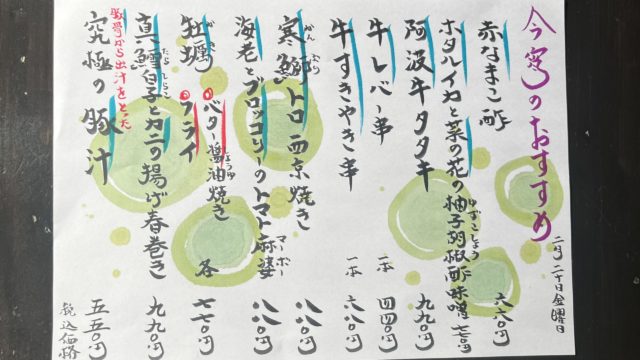 今宵のおすすめ
二月二十日金曜日
赤なまこ酢 六六〇円
ホタルイカと菜の花の柚子胡椒酢味噌 七七〇円
ゆずこしょう
阿波牛タタキ 九九〇円
牛レバー串 一本 四四〇円
牛すきやき串 一本 六六〇円
寒鰤トロ西京焼き 八八〇円
かんぶり
海老とブロッコリーのトマト麻婆 八八〇円
マーボー
牡蠣 バター醤油焼き フライ 各 七七〇円
かき
しょうゆ
真鱈白子とカニの揚げ春巻き 九九〇円
たらしらこ
豚骨から出汁をとった
究極の豚汁 五五〇円
税込価格